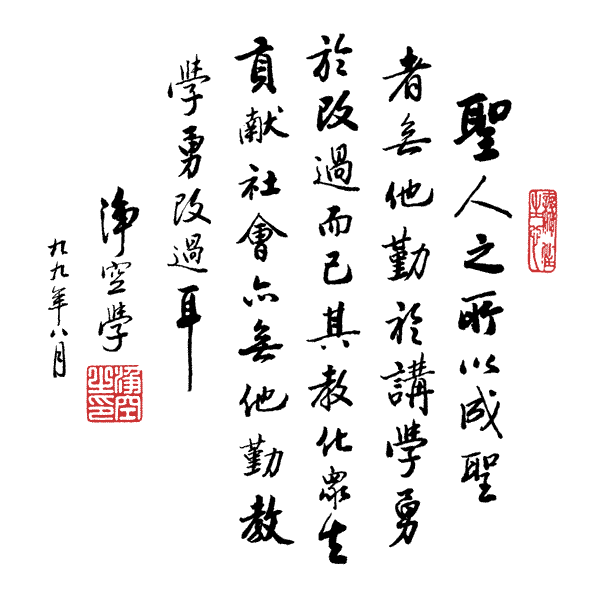 聖人之所以成聖
者無他勤於講學勇
於改過而已其教化眾生
貢献社會亦無他勤教
學勇改過耳
淨空學
九九年八月
淨空之印